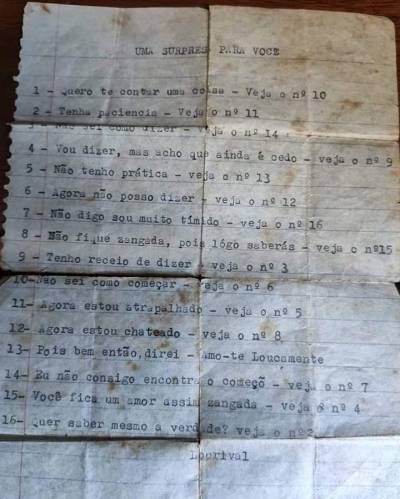 UMA SURPRESA PARA VOCE
1 - Quero te contar uma coisa - Veja o nº 10
2 - Tenha paciencia - Veja o nº 11
3 - Não sei como dizer - veja o nº 14
4 - Vou dizer, mas acho que ainda é cedo - veja o nº 9
5 - Não tenho prática - veja o nº 13
6 - Agora não posso dizer - veja o nº 12
7 - Não digo sou muito tímido - veja o nº 16
8 - Não fique zangada, pois lógo saberás - veja o nº15
9 - Tenho receio de dizer - veja o nº 3
10-Não sei como começar - veja o nº 6
11- Agora estou atrapalhado - veja o nº 5
12- Agora estou chateado - veja o nº 8
13- Pois bem então,direi - Amo-te Loucamente
14- Eu não consigo encontra o começõ - veja o nº 7
15- Você fica um amor assim zangada - veja o nº 4
16- Quer saber mesmo a verdade? veja o nº2
Lourival